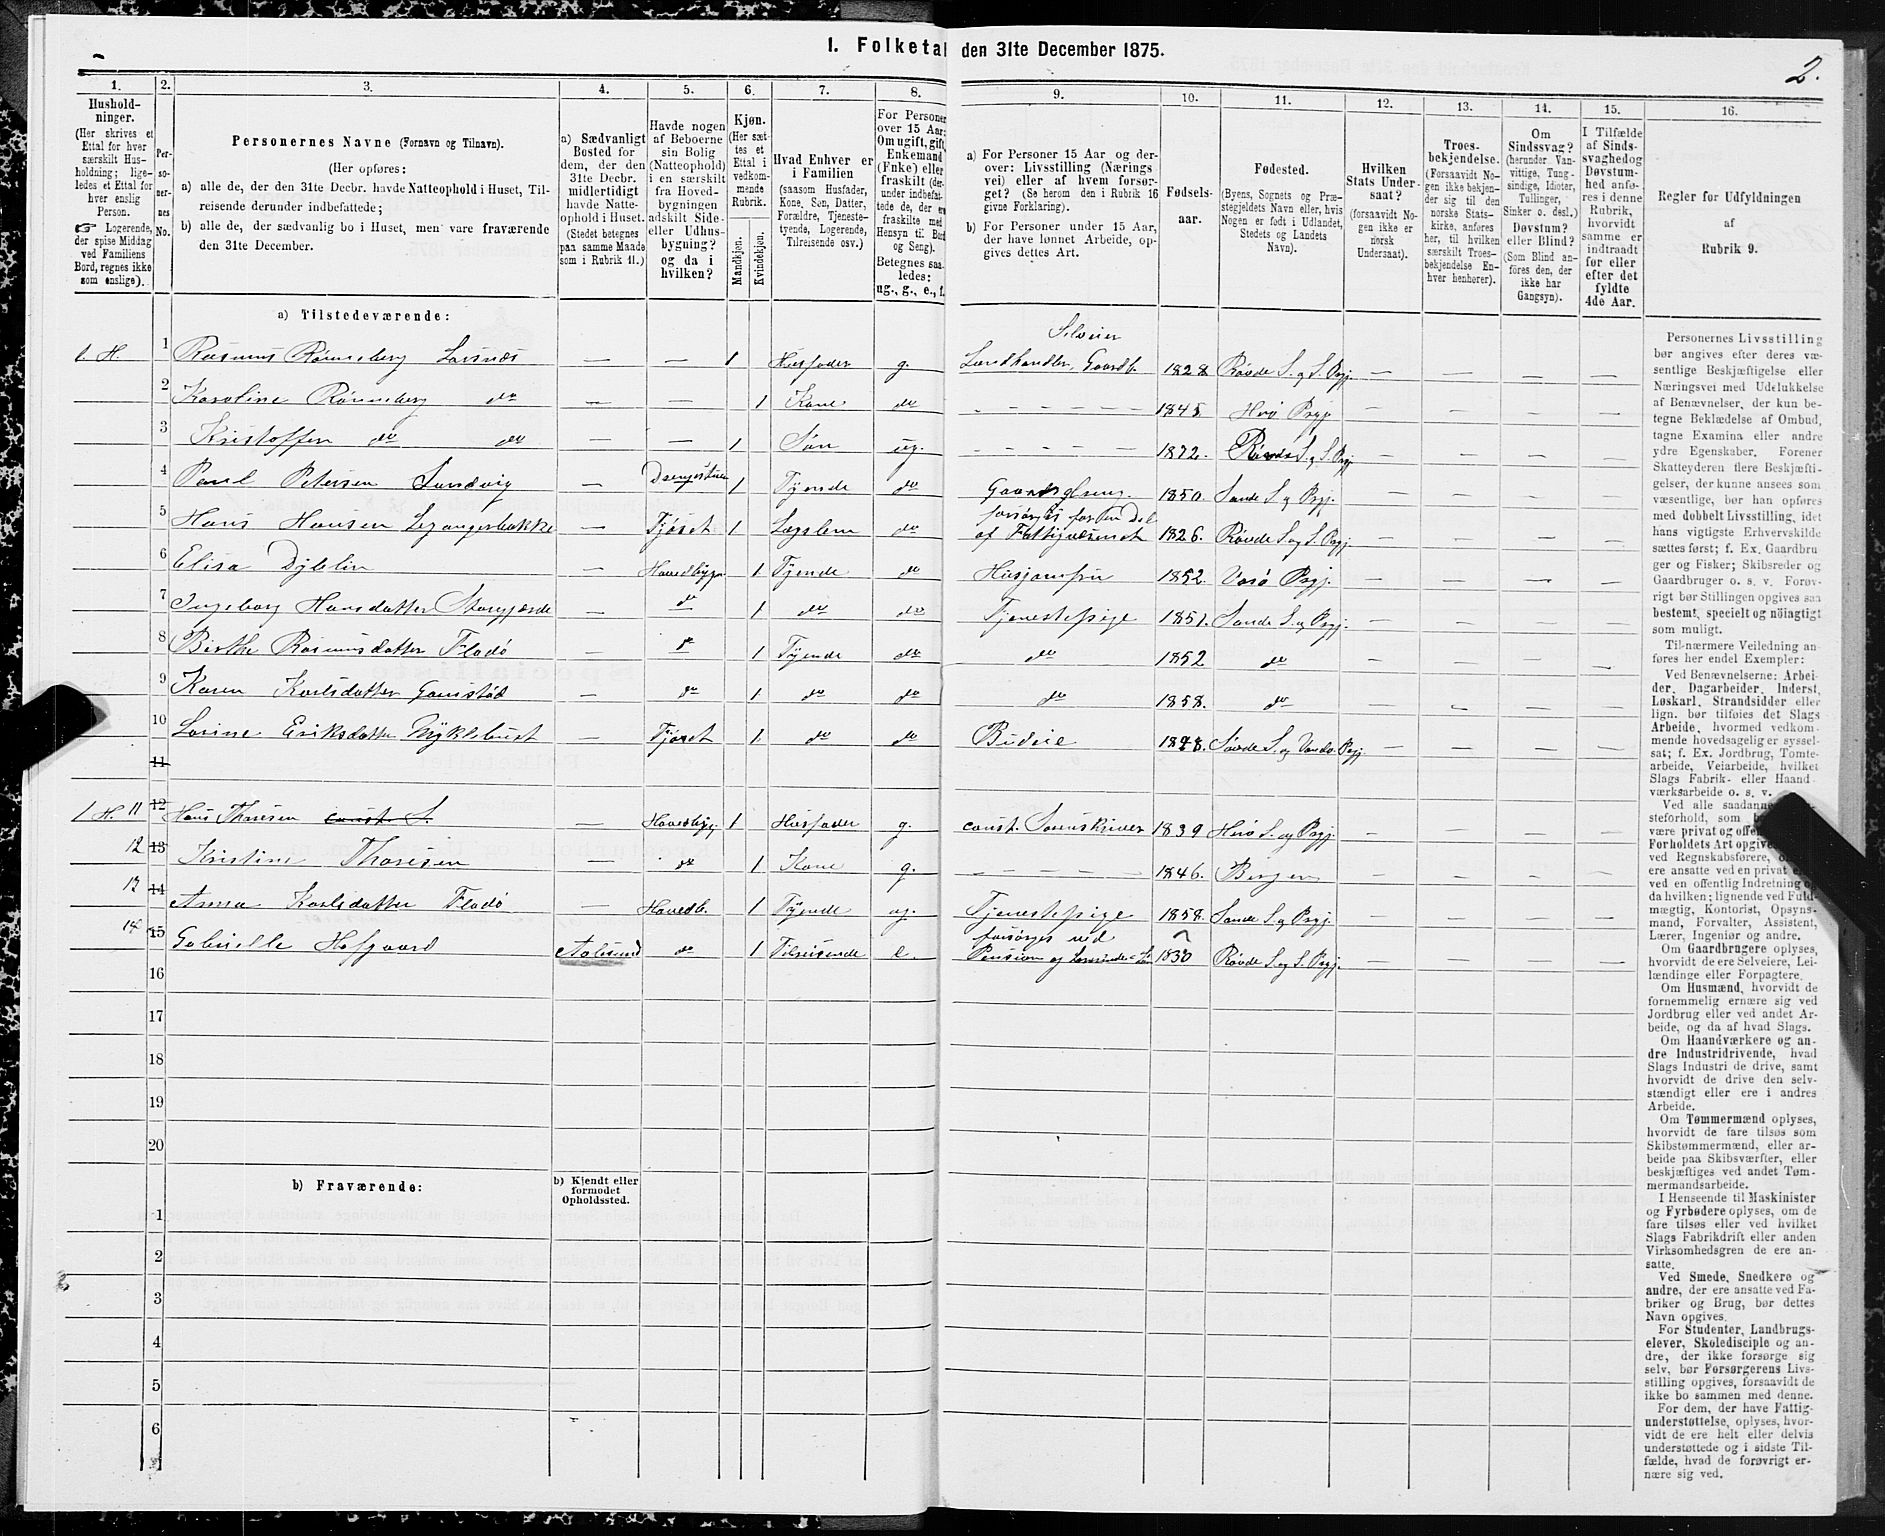 I. Folketal den 31te December 1875.
2.
1.
Hushold-
ninger.
(Her skrives et
Ettal for hver
særskilt Hus-
holdning; lige-
ledes et Ettal for
hver enslig
Person.
Logerende,
der spise Middag
ved Familiens
Bord, regnes ikke
som enslige).
2.
Per-
so-
ner-
nes
No.
3.
Personernes Navne (Fornavn og Tilnavn).
(Her opføres:
a) alle de, der den 31te Decbr. havde Natteophold i Huset, Til-
reisende derunder indbefattede;
b) alle de, der sædvanlig bo i Huset, men vare fraværende
den 31te December.
4.
a) Sædvanligt
Bosted for
dem, der den
31te Decbr.
midlertidigt
havde Natte-
ophold i Huset.
(Stedet betegnes
paa samme Maade
som i Rubrik 11.)
5.
Havde nogen
af Beboerne
sin Bolig
(Natteophold)
i en særskilt
fra Hoved-
bygningen
adskilt Side-
eller Udhus-
bygning?
og da i
hvilken?
6.
Kjøn.
(Her sæt-
tes et
Ettal i
vedkom-
mende
Rubrik.
Mandkjøn.
Kvindekjøn.
7.
Hvad Enhver er
i Familien
(saasom Husfader,
Kone, Søn, Datter,
Forældre, Tjeneste-
tyende, Logerende,
Tilreisende osv.)
8.
For Personer
over 15 Aar:
Om ugift, gift,
Enkemand
(Enke) eller
fraskilt (der-
under indbefat-
tede de, der ere
fraskilte med
Hensyn til Bord
og Seng).
Betegnes saa-
ledes:
ug., g., e., f.
9.
a) For Personer 15 Aar og der-
over: Livsstilling (Nærings-
vei) eller af hvem forsør-
get? (Se herom den i Rubrik 16
givne Forklaring).
b) For Personer under 15 Aar,
der have lønnet Arbeide, op-
gives dettes Art.
10.
Fødsels-
aar.
11.
Fødested.
(Byens, Sognets og Præ-
stegjeldets Navn eller, hvis
Nogen er født i Udlandet,
Stedets og Landets
Navn).
12.
Hvilken
Stats Under-
saat?
(forsaavidt No-
gen ikke er
norsk
Undersaat).
13.
Troes-
bekjendelse.
(Forsaavidt No-
gen ikke bekjen-
der sig til den
norske Stats-
kirke, anføres
her, til hvilken
særskilt Troes-
bekjendelse En-
hver henhører).
14.
Om
Sindssvag?
(herunder Van-
vittige, Tung-
sindige, Idioter,
Tullinger,
Sinker o. desl.)
Døvstum?
eller Blind?
(Som Blind an-
føres den, der
ikke har
Gangsyn).
15.
I Tilfælde
af Sinds-
svaghed og
Døvstum-
hed anfø-
res i denne
Rubrik,
hvorvidt
samme er
indtraadt
før eller
efter det
fyldte
4de Aar.
16.
Regler for Udfyldningen
af
Rubrik 9.
a) Tilstedeværende:
Selveier
1. H. 1 Rasmus Rønneberg Larsnæs — — 1 Husfader g. Landhandler, Gaardb. 1828 Røvde S. og S. Prgj. — — — —
2 Karoline Rønneberg do — — 1 Kone do - - - - - - 1845. Herø Prgj. — — — —
3 Kristoffer do do — — 1 Søn ug. - - - - 1872. Røvde S. og S. Prgj — — — —
4 Paul Petersen Sandvig — Drengestuen 1 Tyende do 1850. Sande S. og Prgj. — — — —
forsørges for en Del
5 Hans Hansen — Fjøset 1 Lægslem do af Fattigvæsenet 1826. Røvde S. og S. Prgj. — — — —
6 Elisa — Hovedbygn. 1 Tyende do Husjomfru 1852. Prgj. — — — —
7 Ingeborg Hansdatter — do 1 do do Tjenestepige 1851. Sande S. og Prgj. — — — —
8 Birthe Rasmusdatter Flodø — do 1 Tyende do do 1852 do — — — —
9 Karen Karlsdatter — do 1 do do do 1858. do — — — —
10 Larine Eriksdatter Myklebust — Fjøset 1 do do Budeie Prgj — — — —
11
1 H. 11 12 Hans Thoresen const. S. Hovedbyg 1 Husfader g. const. Sorenskriver 1839 Herø S. og Prgj. — — — —
12 13 Kristine Thoresen — do 1 Kone g. - - - - - 1846. Bergen — — — —
13 14 Anna Karlsdatter Flodø — Hovedb. 1 Tyende ug. Tjenestepige 1858. Sande S. og Prgj. — — — —
forsørges ved
14 15 Gabrielle Hofgaard Aalesund do 1 Tilreisende e. Pension og 1830 Røvde S. og S. Prgj. — — — —
16
17
18
19
20
b) Fraværende:
b) Kjendt eller
formodet
Opholdssted.
1
2
3
4
5
6
Personernes Livsstilling
bør angives efter deres væ-
sentlige Beskjæftigelse eller
Næringsvei med Udelukkelse
af Benævnelser, der kun be-
tegne Beklædelse af Ombud,
tagne Examina eller andre
ydre Egenskaber. Forener
Skatteyderen flere Beskjæfti-
gelser, der kunne ansees som
væsentlige, bør han opføres
med dobbelt Livsstilling, idet
hans vigtigste Erhvervskilde
sættes først; f. Ex. Gaardbru-
ger og Fisker; Skibsreder og
Gaardbruger o. s. v. Forøv-
rigt bør Stillingen opgives saa
bestemt, specielt og nøiagtigt
som muligt.
Til nærmere Veiledning an-
føres her endel Exempler:
Ved Benævnelserne: Arbei-
der, Dagarbeider, Inderst,
Løskarl, Strandsidder eller
lign. bør tilføies det Slags
Arbeide, hvormed vedkom-
mende hovedsagelig er syssel-
sat; f. Ex. Jordbrug, Tomte-
arbeide, Veiarbeide, hvilket
Slags Fabrik- eller Haand-
værksarbeide o. s. v.
Ved alle saadanne
steforhold, som
være privat og offe
Forholdets Art opgives
ved Regnskabsførere,
ere ansatte ved en privat
ved en offentlig Indretning og
da hvilken; lignende ved Fuld-
mægtig, Kontorist, Opsyns-
mand, Forvalter, Assistent,
Lærer, Ingeniør og andre.
Om Gaardbrugere oplyses,
hvorvidt de ere Selveiere, Lei-
lændinge eller Forpagtere.
Om Husmænd, hvorvidt de
fornemmelig ernære sig ved
Jordbrug eller ved andet Ar-
beide, og da af hvad Slags.
Om Haandværkere og an-
dre Industridrivende, hvad
Slags Industri de drive, samt
hvorvidt de drive den selv-
stændigt eller ere i andres
Arbeide.
Om Tømmermænd oplyses,
hvorvidt de fare tilsøs som
Skibstømmermænd, eller ar-
beide paa Skibsværfter, eller
beskjæftiges ved andet Tøm-
mermandsarbeide.
I Henseende til Maskinister
og Fyrbødere oplyses, om de
fare tilsøs eller ved hvilket
Slags Fabrikdrift eller anden
Virksomhedsgren de ere an-
satte.
Ved Smede, Snedkere og
andre, der ere ansatte ved Fa-
briker og Brug, bør dettes
Navn opgives.
For Studenter, Landbrugs-
elever, Skoledisciple og an-
dre, der ikke forsørge sig
selv, bør Forsørgerens Livs-
stilling opgives, forsaavidt de
ikke bo sammen med denne.
For dem, der have Fattig-
understøttelse, oplyses, hvor-
vidt de ere helt eller delvis
understøttede og i sidste Til-
fælde, hvad de forøvrigt er-
nære sig ved.